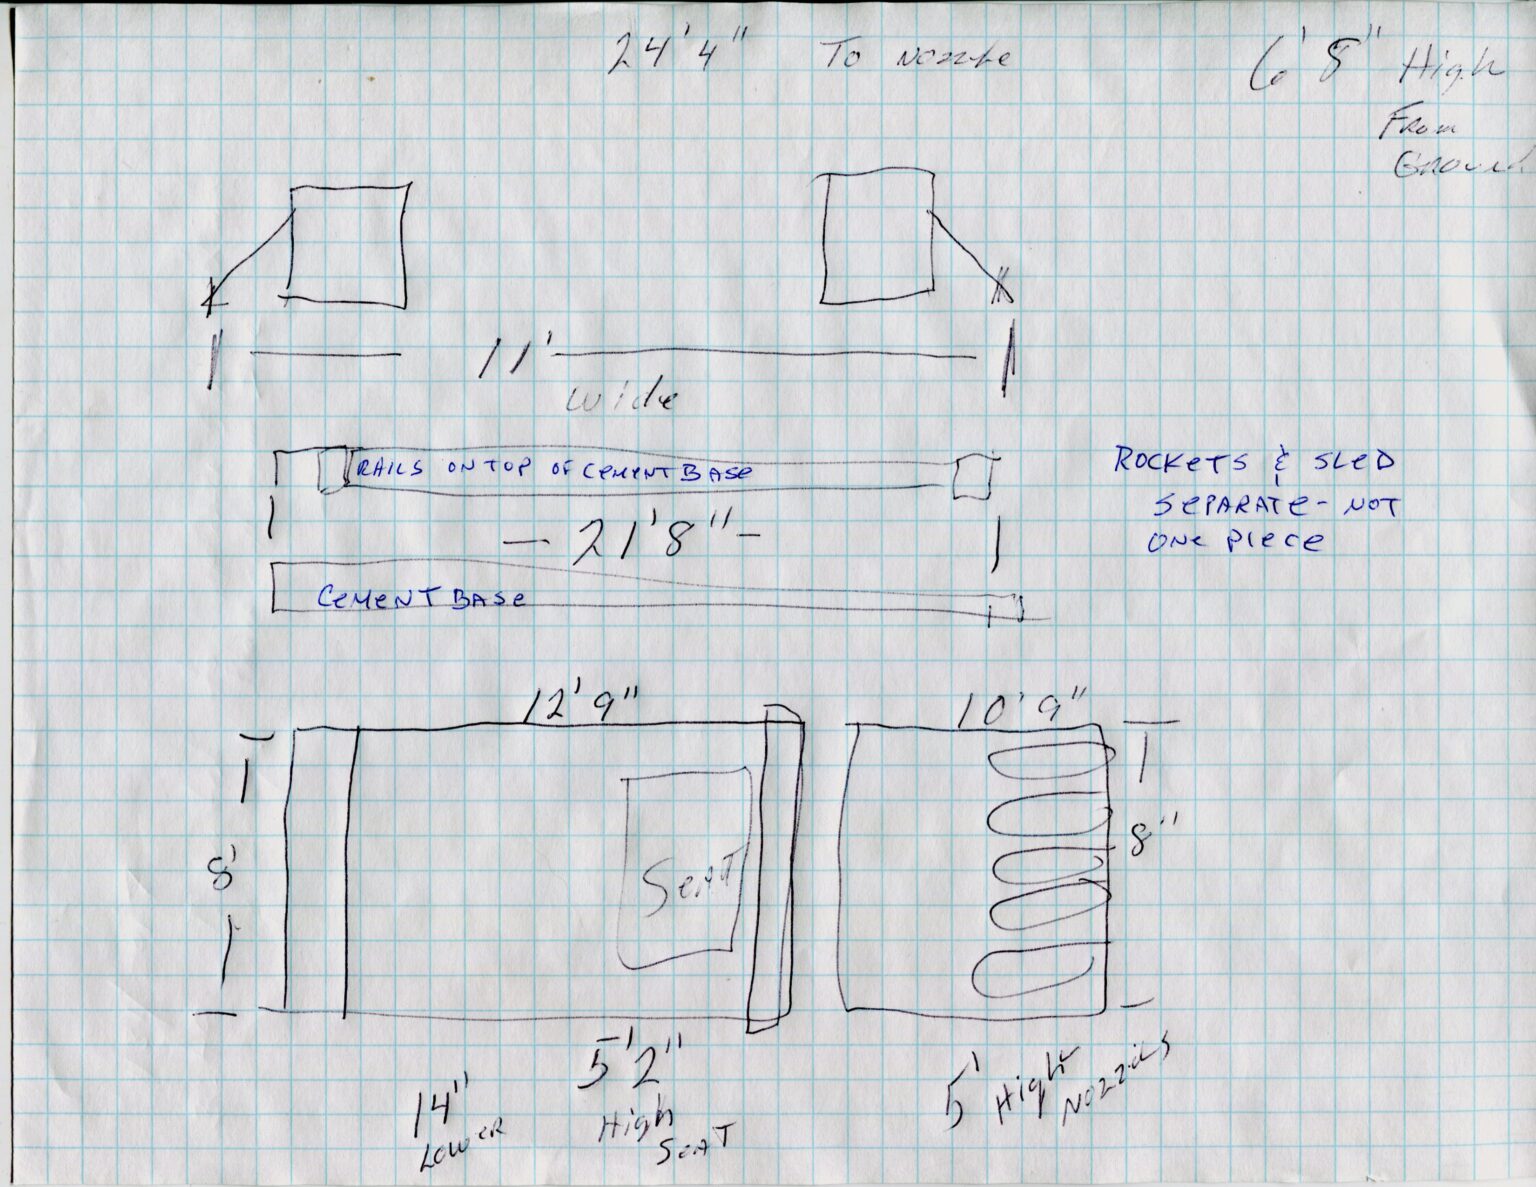 24'4" To Nozzle
6'8" High
From
Ground
11'
wide
RAILS ON TOP OF CEMENT BASE
- 21'8" -
CEMENT BASE
ROCKETS & SLED
SEPARATE - NOT
ONE PIECE
12'9"
10'9"
8'
SEAT
8"
14"
LOWER
5'2"
High
SEAT
5' High
Nozzles